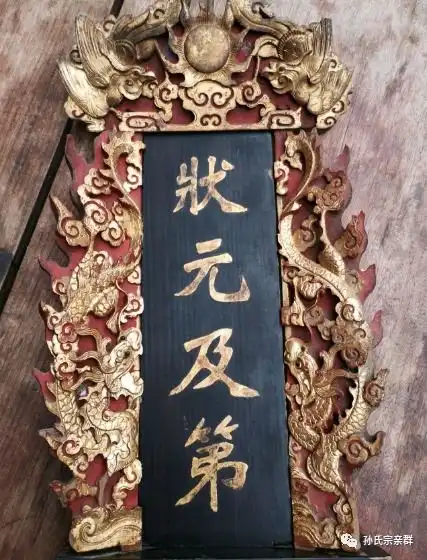 狀元及第
孙氏宗亲群